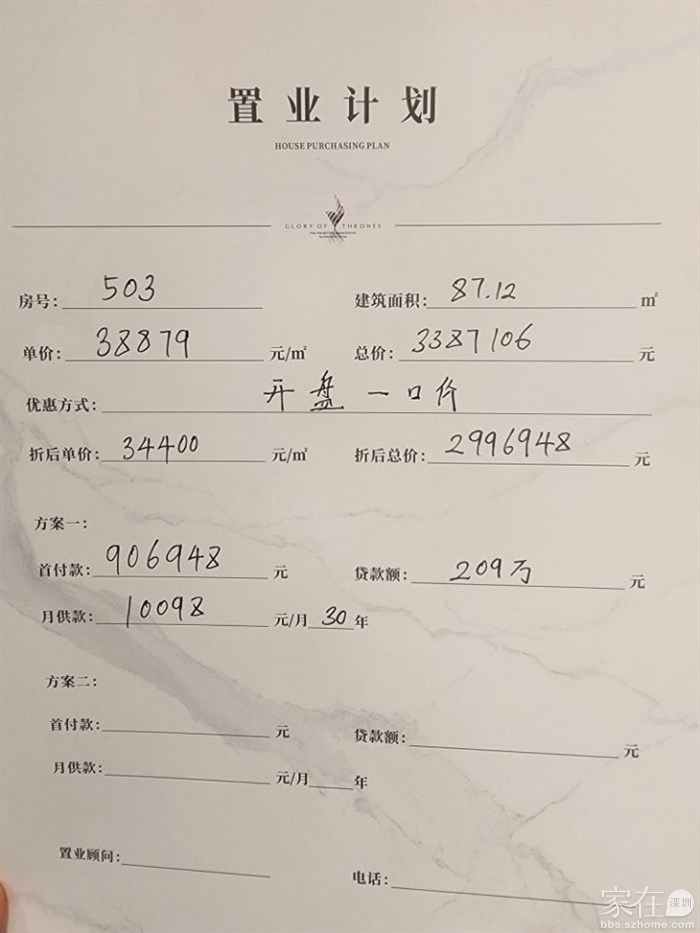 置业计划
HOUSE PURCHASING PLAN
GLORY OF THRONES
房号: 503 建筑面积: 87.12 ㎡
单价: 38879 元/㎡ 总价: 3387106 元
优惠方式: 开盘一口价
折后单价: 34400 元/㎡ 折后总价: 2996948 元
方案一:
首付款: 906948 元 贷款额: 209万 元
月供款: 10098 元/月 30 年
方案二:
首付款: 元 贷款额: 元
月供款: 元/月 年
置业顾问: 电话:
家在 深圳
bbs.szhome.com